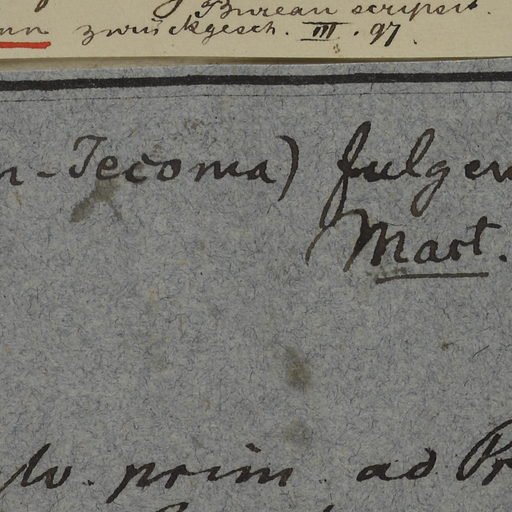 Bureau scripsit.
zurückgesch. III. 97.
-Tecoma) fulge
Mart.
prim ad Pr